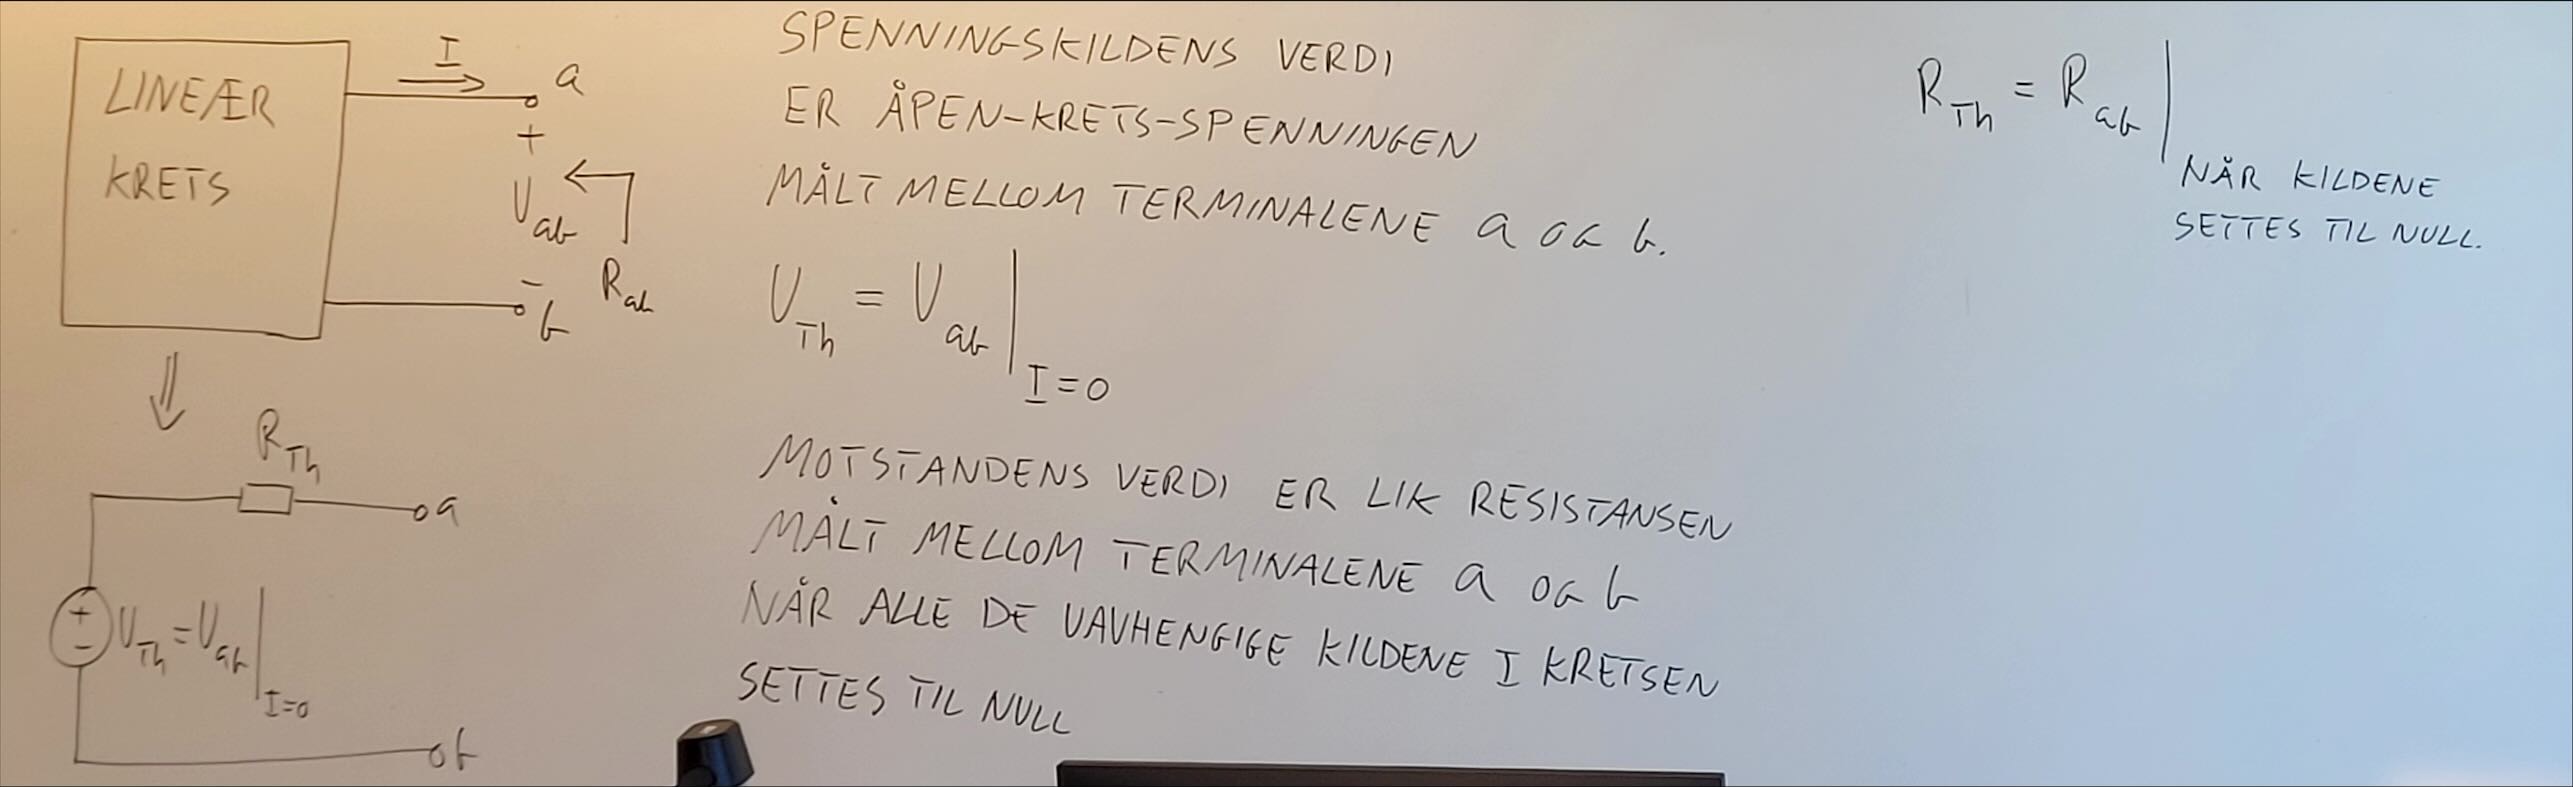 LINEÆR
KRETS
I
a
+
U_ab
R_ab
-
b
⇓
R_Th
a
+
-
U_Th = U_ab |_I=0
b
SPENNINGSKILDENS VERDI
ER ÅPEN-KRETS-SPENNINGEN
MÅLT MELLOM TERMINALENE a OG b.
U_Th = U_ab |_I=0
MOTSTANDENS VERDI ER LIK RESISTANSEN
MÅLT MELLOM TERMINALENE a OG b
NÅR ALLE DE UAVHENGIGE KILDENE I KRETSEN
SETTES TIL NULL
R_Th = R_ab |
NÅR KILDENE
SETTES TIL NULL.